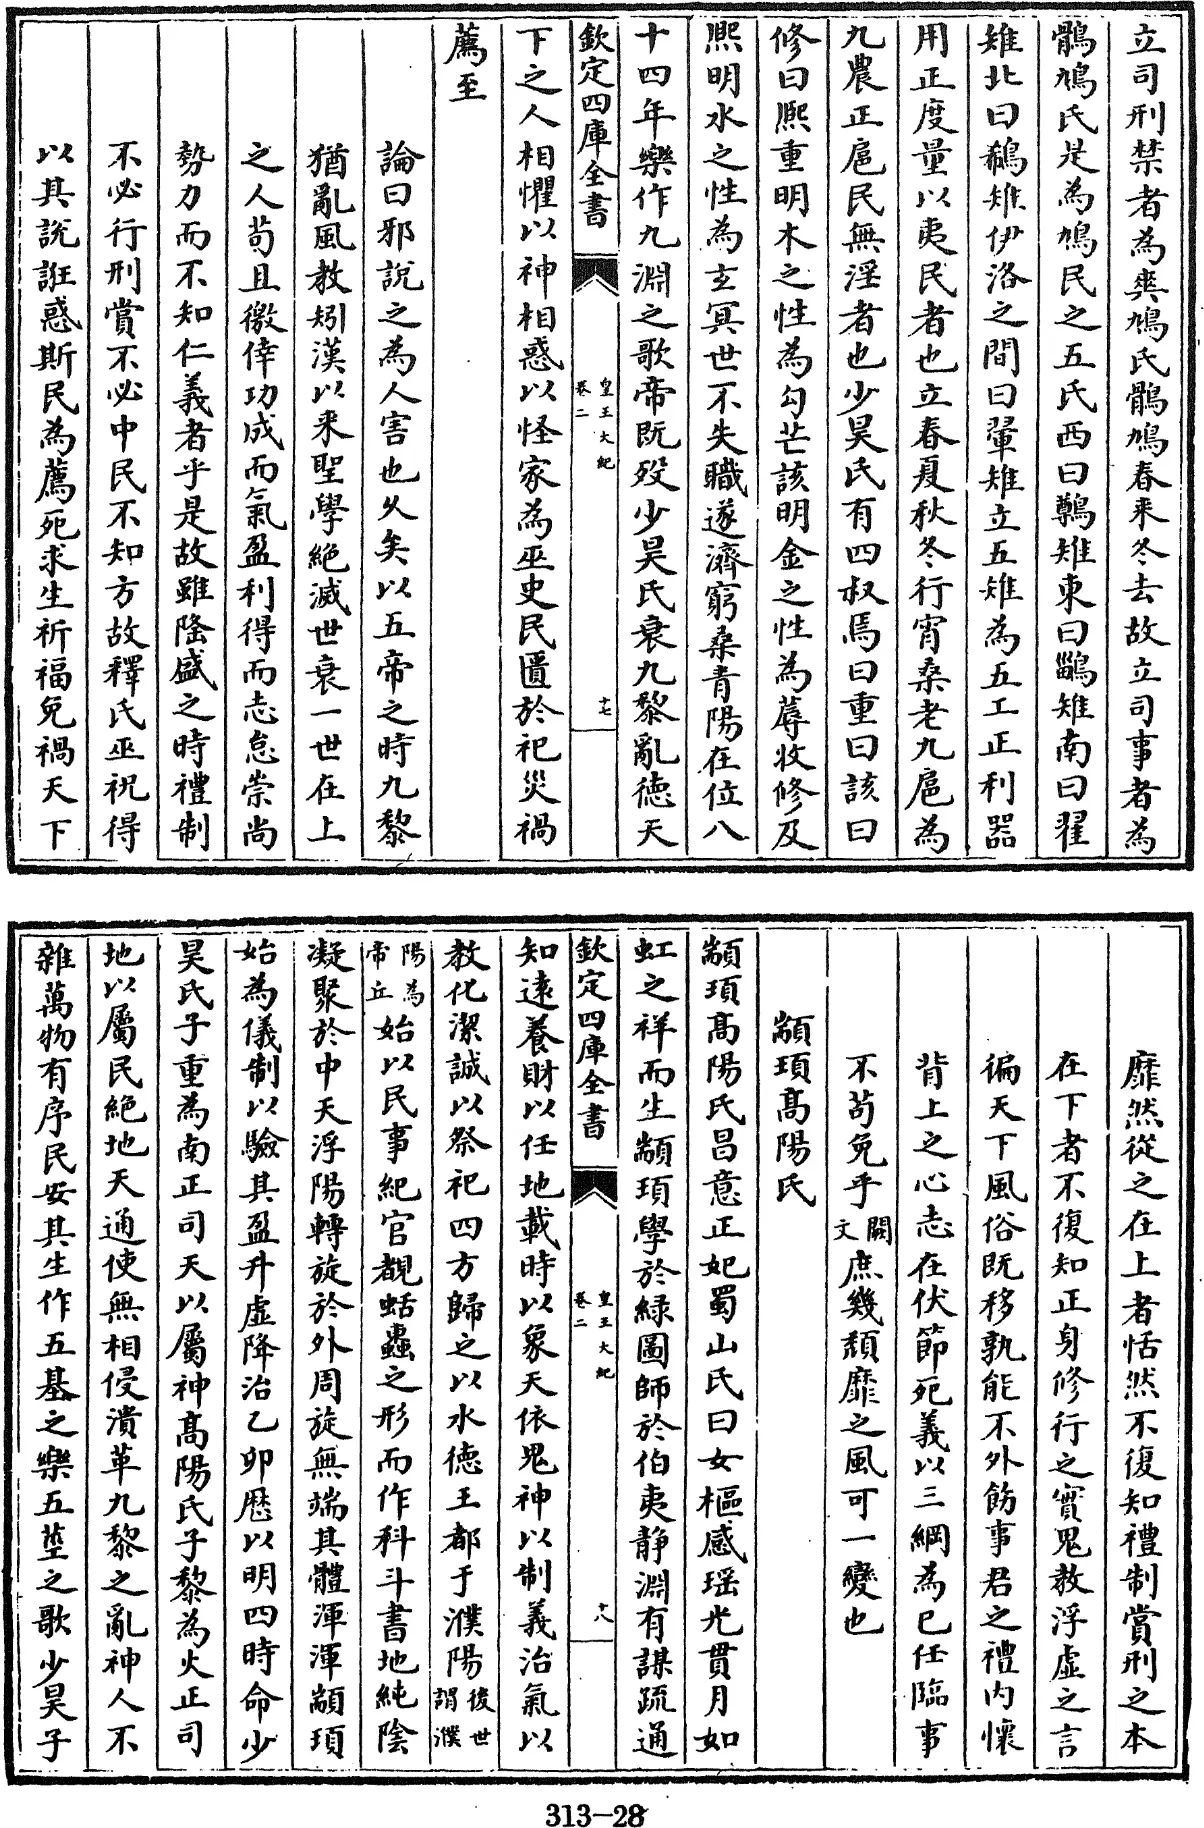 立司刑禁者為爽鳩氏鶻鳩春来冬去故立司事者為
鶻鳩氏是為鳩民之五氏西曰鷷雉東曰鶅雉南曰翟
雉北曰鵗雉伊洛之間曰翬雉立五雉為五工正利器
用正度量以夷民者也立春夏秋冬行宵桑老九扈為
九農正扈民無淫者也少昊氏有四叔焉曰重曰該曰
修曰熈重明木之性為勾芒該明金之性為蓐收修及
熈明水之性為玄冥世不失職遂濟窮桑青陽在位八
十四年樂作九淵之歌帝既歿少昊氏衰九黎亂徳天
欽定四庫全書
皇王大紀
卷二
十七
下之人相懼以神相惑以怪家為巫史民匱於祀災禍
薦至
論曰邪説之為人害也久矣以五帝之時九黎
猶亂風教矧漢以来聖學絶滅世衰一世在上
之人苟且徼倖功成而氣盈利得而志怠崇尚
勢力而不知仁義者乎是故雖隆盛之時禮制
不必行刑賞不必中民不知方故釋氏巫祝得
以其説誑惑斯民為薦死求生祈福免禍天下
靡然從之在上者恬然不復知禮制賞刑之本
在下者不復知正身修行之實鬼教浮虚之言
徧天下風俗既移孰能不外飭事君之禮内懐
背上之心志在伏節死義以三綱為已任臨事
不苟免乎闕文庶幾頽靡之風可一變也
顓頊髙陽氏
顓頊髙陽氏昌意正妃蜀山氏曰女樞感瑶光貫月如
虹之祥而生顓頊學於緑圖師於伯夷静淵有謀疏通
欽定四庫全書
皇王大紀
卷二
十八
知逺養財以任地載時以象天依鬼神以制義治氣以
教化潔誠以祭祀四方歸之以水徳王都于濮陽後世謂濮
陽為帝丘始以民事紀官覩蛞蟲之形而作科斗書地純陰
凝聚於中天浮陽轉旋於外周旋無端其體渾渾顓頊
始為儀制以驗其盈升虚降治乙卯厯以明四時命少
昊氏子重為南正司天以屬神髙陽氏子黎為火正司
地以屬民絶地天通使無相侵瀆革九黎之亂神人不
雜萬物有序民安其生作五基之樂五莖之歌少昊子
313-28